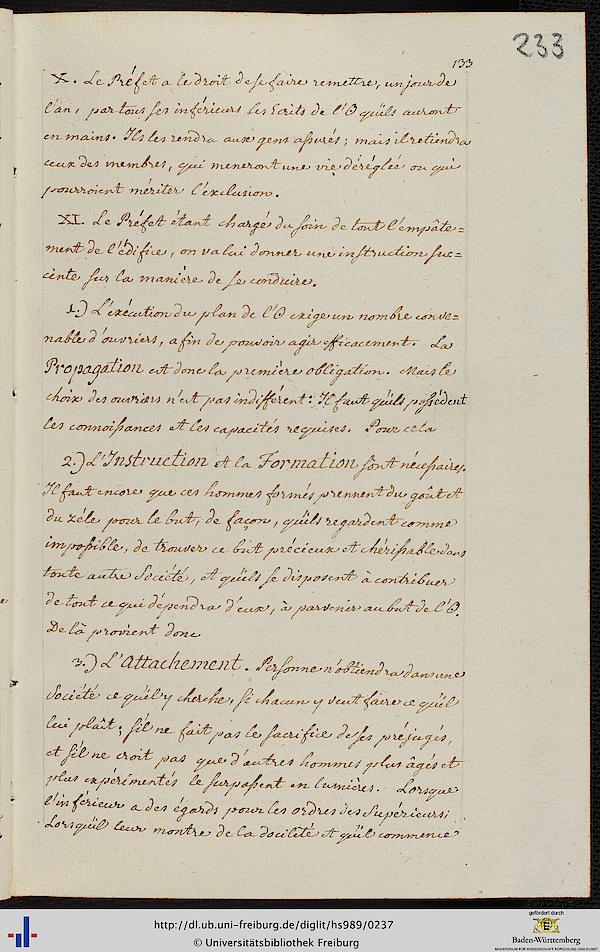 233
133
X. Le Préfet a le droit de se faire remettre, un jour de
l'an, par tous ses inférieurs les Ecrits de l'O qu'ils auront
en mains. Il les rendra aux gens assurés; mais il retiendra
ceux des membres, qui meneront une vie déréglée ou qui
pourroient mériter l'exclusion.
XI. Le Préfet étant chargé du soin de tout l'empâte=
ment de l'édifice, on va lui donner une instruction suc=
cinte sur la manière de se conduire.
1.) L'exécution du plan de l'O exige un nombre conve=
nable d'ouvriers, afin de pouvoir agir efficacement. La
Propagation est donc la première obligation. Mais le
choix des ouvriers n'est pas indifférent: Il faut qu'ils possèdent
les connoissances et les capacités requises. Pour cela
2.) L'Instruction et la Formation sont nécessaires.
Il faut encore que ces hommes formés prennent du goût et
du zéle pour le but, de façon, qu'ils regardent comme
impossible, de trouver ce bùt précieux et chérissable dans
toute autre Société, et qu'ils se disposent à contribuer
de tout ce qui dépendra d'eux, à parvenir au but de l'O.
De là provient donc
3.) L'Attachement. Personne n'obtiendra dans une
Société ce qu'il y cherche, si chacun y veut faire ce qu'il
lui plaît; s'il ne fait pas le sacrifice de ses préjugés,
et s'il ne croit pas que d'autres hommes plus âgés et
plus expérimentés le surpassent en lumières. Lorsque
l'inférieur a des égards pour les ordres des Supérieurs;
Lorsqu'il leur montre de la docilité et qu'il commence
http://dl.ub.uni-freiburg.de/diglit/hs989/0237
© Universitätsbibliothek Freiburg
gefördert durch
Baden-Württemberg
MINISTERIUM FÜR WISSENSCHAFT, FORSCHUNG UND KUNST